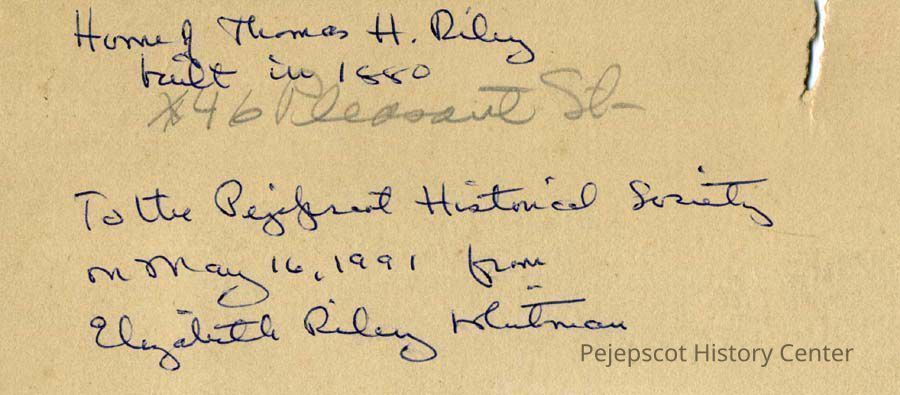 Home of Thomas H. Riley
built in 1880
#46 Pleasant St-
To the Pejepscot Historical Society
on May 16, 1991 from
Elizabeth Riley Whitman
Pejepscot History Center